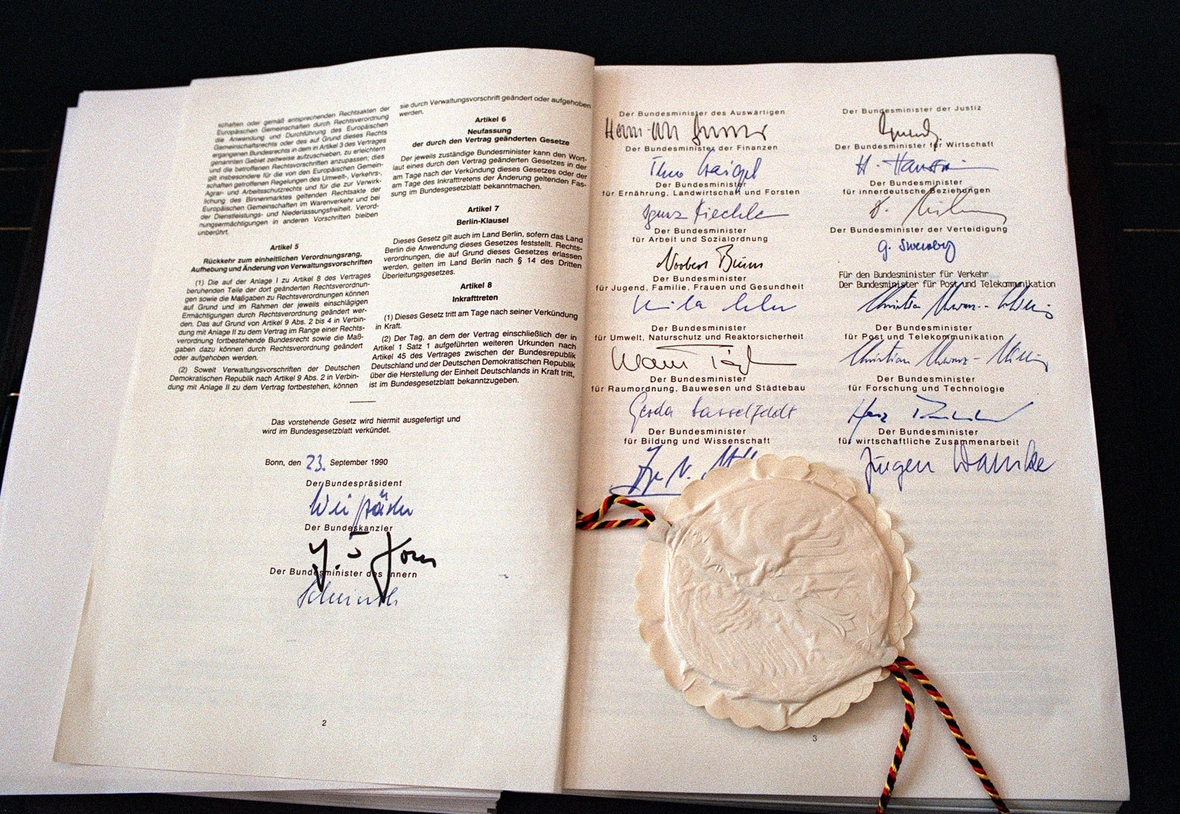 schalten oder gemäß entsprechenden Rechtsakten der
Europäischen Gemeinschaften durch Rechtsverordnung
die Anwendung und Durchführung des Europäischen
Gemeinschaftsrechts oder des auf Grund dieses Rechts
ergangenen Bundesrechts in dem in Artikel 3 des Vertrages
genannten Gebiet zeitweise aufzuschieben, zu erleichtern
und die betroffenen Rechtsvorschriften anzupassen; dies
gilt insbesondere für die von den Europäischen Gemein-
schaften getroffenen Regelungen des Umwelt-, Verkehrs-
Agrar- und Arbeitsschutzrechts und für die zur Verwirk-
lichung des Binnenmarktes geltenden Rechtsakte der
Europäischen Gemeinschaften im Warenverkehr und bei
der Dienstleistungs- und Niederlassungsfreiheit. Verord-
nungsermächtigungen in anderen Vorschriften bleiben
unberührt.
Artikel 5
Rückkehr zum einheitlichen Verordnungsrang,
Aufhebung und Änderung von Verwaltungsvorschriften
(1) Die auf der Anlage I zu Artikel 8 des Vertrages
beruhenden Teile der dort geänderten Rechtsverordnun-
gen sowie die Maßgaben zu Rechtsverordnungen können
auf Grund und im Rahmen der jeweils einschlägigen
Ermächtigungen durch Rechtsverordnung geändert wer-
den. Das auf Grund von Artikel 9 Abs. 2 bis 4 in Verbin-
dung mit Anlage II zu dem Vertrag im Range einer Rechts-
verordnung fortbestehende Bundesrecht sowie die Maß-
gaben dazu können durch Rechtsverordnung geändert
oder aufgehoben werden.
(2) Soweit Verwaltungsvorschriften der Deutschen
Demokratischen Republik nach Artikel 9 Abs. 2 in Verbin-
dung mit Anlage II zu dem Vertrag fortbestehen, können
sie durch Verwaltungsvorschrift geändert oder aufgehoben
werden.
Artikel 6
Neufassung
der durch den Vertrag geänderten Gesetze
Der jeweils zuständige Bundesminister kann den Wort-
laut eines durch den Vertrag geänderten Gesetzes in der
am Tage nach der Verkündung dieses Gesetzes oder der
am Tage des Inkrafttretens der Änderung geltenden Fas-
sung im Bundesgesetzblatt bekanntmachen.
Artikel 7
Berlin-Klausel
Dieses Gesetz gilt auch im Land Berlin, sofern das Land
Berlin die Anwendung dieses Gesetzes feststellt. Rechts-
verordnungen, die auf Grund dieses Gesetzes erlassen
werden, gelten im Land Berlin nach § 14 des Dritten
Überleitungsgesetzes.
Artikel 8
Inkrafttreten
(1) Dieses Gesetz tritt am Tage nach seiner Verkündung
in Kraft.
(2) Der Tag, an dem der Vertrag einschließlich der in
Artikel 1 Satz 1 aufgeführten weiteren Urkunden nach
Artikel 45 des Vertrages zwischen der Bundesrepublik
Deutschland und der Deutschen Demokratischen Republik
über die Herstellung der Einheit Deutschlands in Kraft tritt,
ist im Bundesgesetzblatt bekanntzugeben.
Das vorstehende Gesetz wird hiermit ausgefertigt und
wird im Bundesgesetzblatt verkündet.
Bonn, den 23. September 1990
Der Bundespräsident
Der Bundeskanzler
Der Bundesminister des Innern
2
Der Bundesminister des Auswärtigen
Der Bundesminister der Finanzen
Theo Waigel
Der Bundesminister
für Ernährung, Landwirtschaft und Forsten
Ignaz Kiechle
Der Bundesminister
für Arbeit und Sozialordnung
Norbert Blüm
Der Bundesminister
für Jugend, Familie, Frauen und Gesundheit
Der Bundesminister
für Umwelt, Naturschutz und Reaktorsicherheit
Der Bundesminister
für Raumordnung, Bauwesen und Städtebau
Gerda Hasselfeldt
Der Bundesminister
für Bildung und Wissenschaft
Der Bundesminister der Justiz
Der Bundesminister für Wirtschaft
H. Haussmann
Der Bundesminister
für innerdeutsche Beziehungen
Der Bundesminister der Verteidigung
Für den Bundesminister für Verkehr
Der Bundesminister für Post und Telekommunikation
Christian Schwarz-Schilling
Der Bundesminister
für Post und Telekommunikation
Christian Schwarz-Schilling
Der Bundesminister
für Forschung und Technologie
Der Bundesminister
für wirtschaftliche Zusammenarbeit
Jürgen Warnke
3